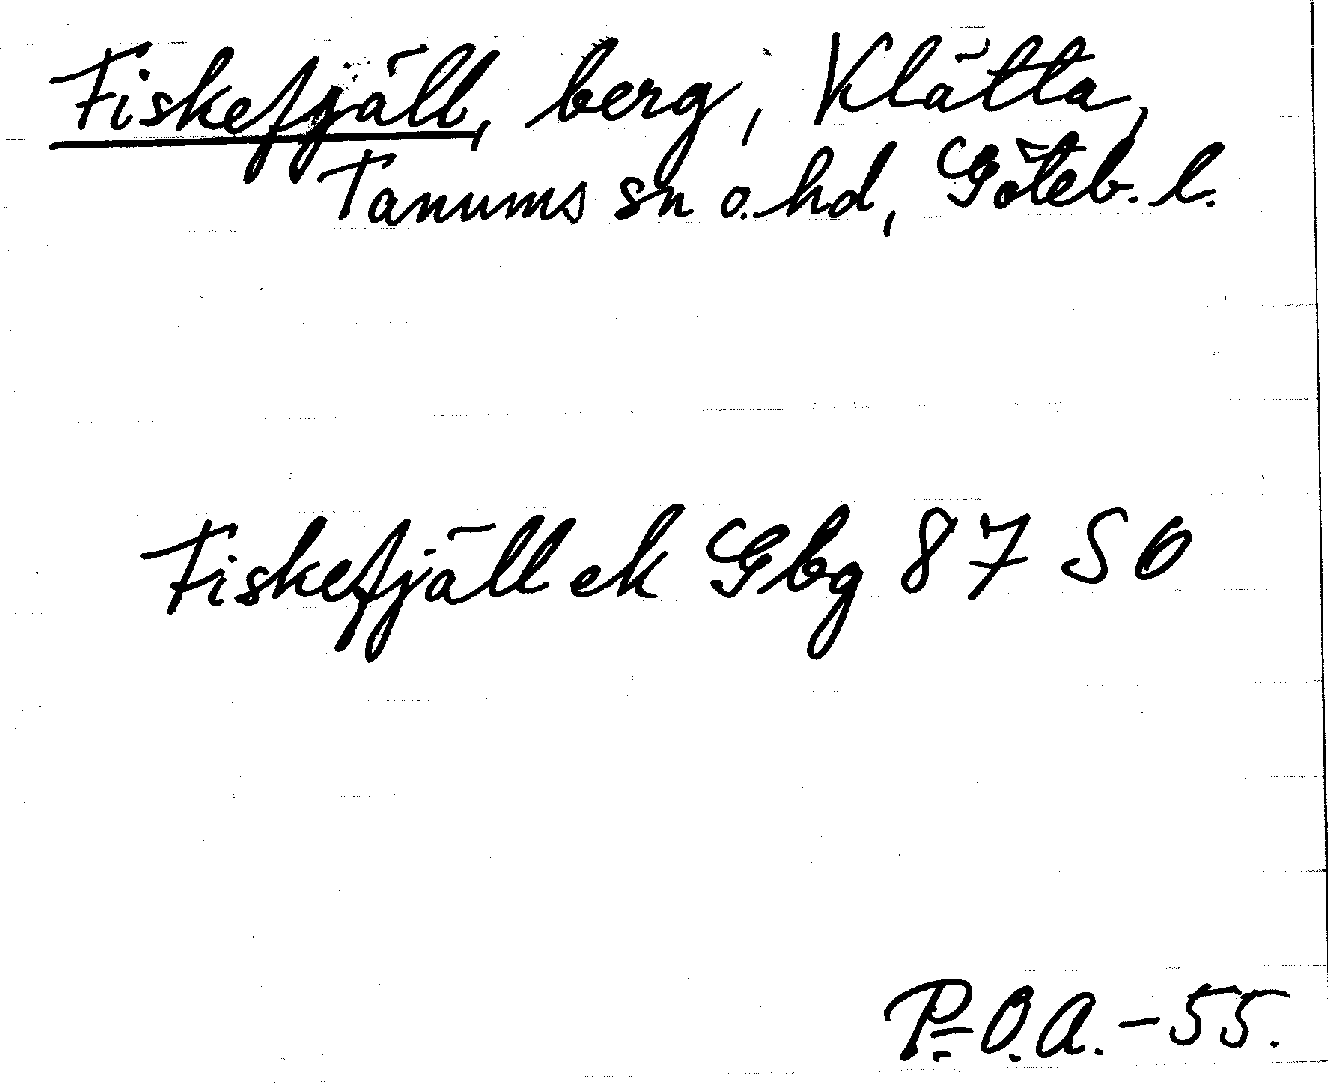 Fiskefjäll, berg, Klätta,
Tanums sn o. hd, Göteb. l.
Fiskefjäll ek Gbg 87 SO
P.-O.A.-55.